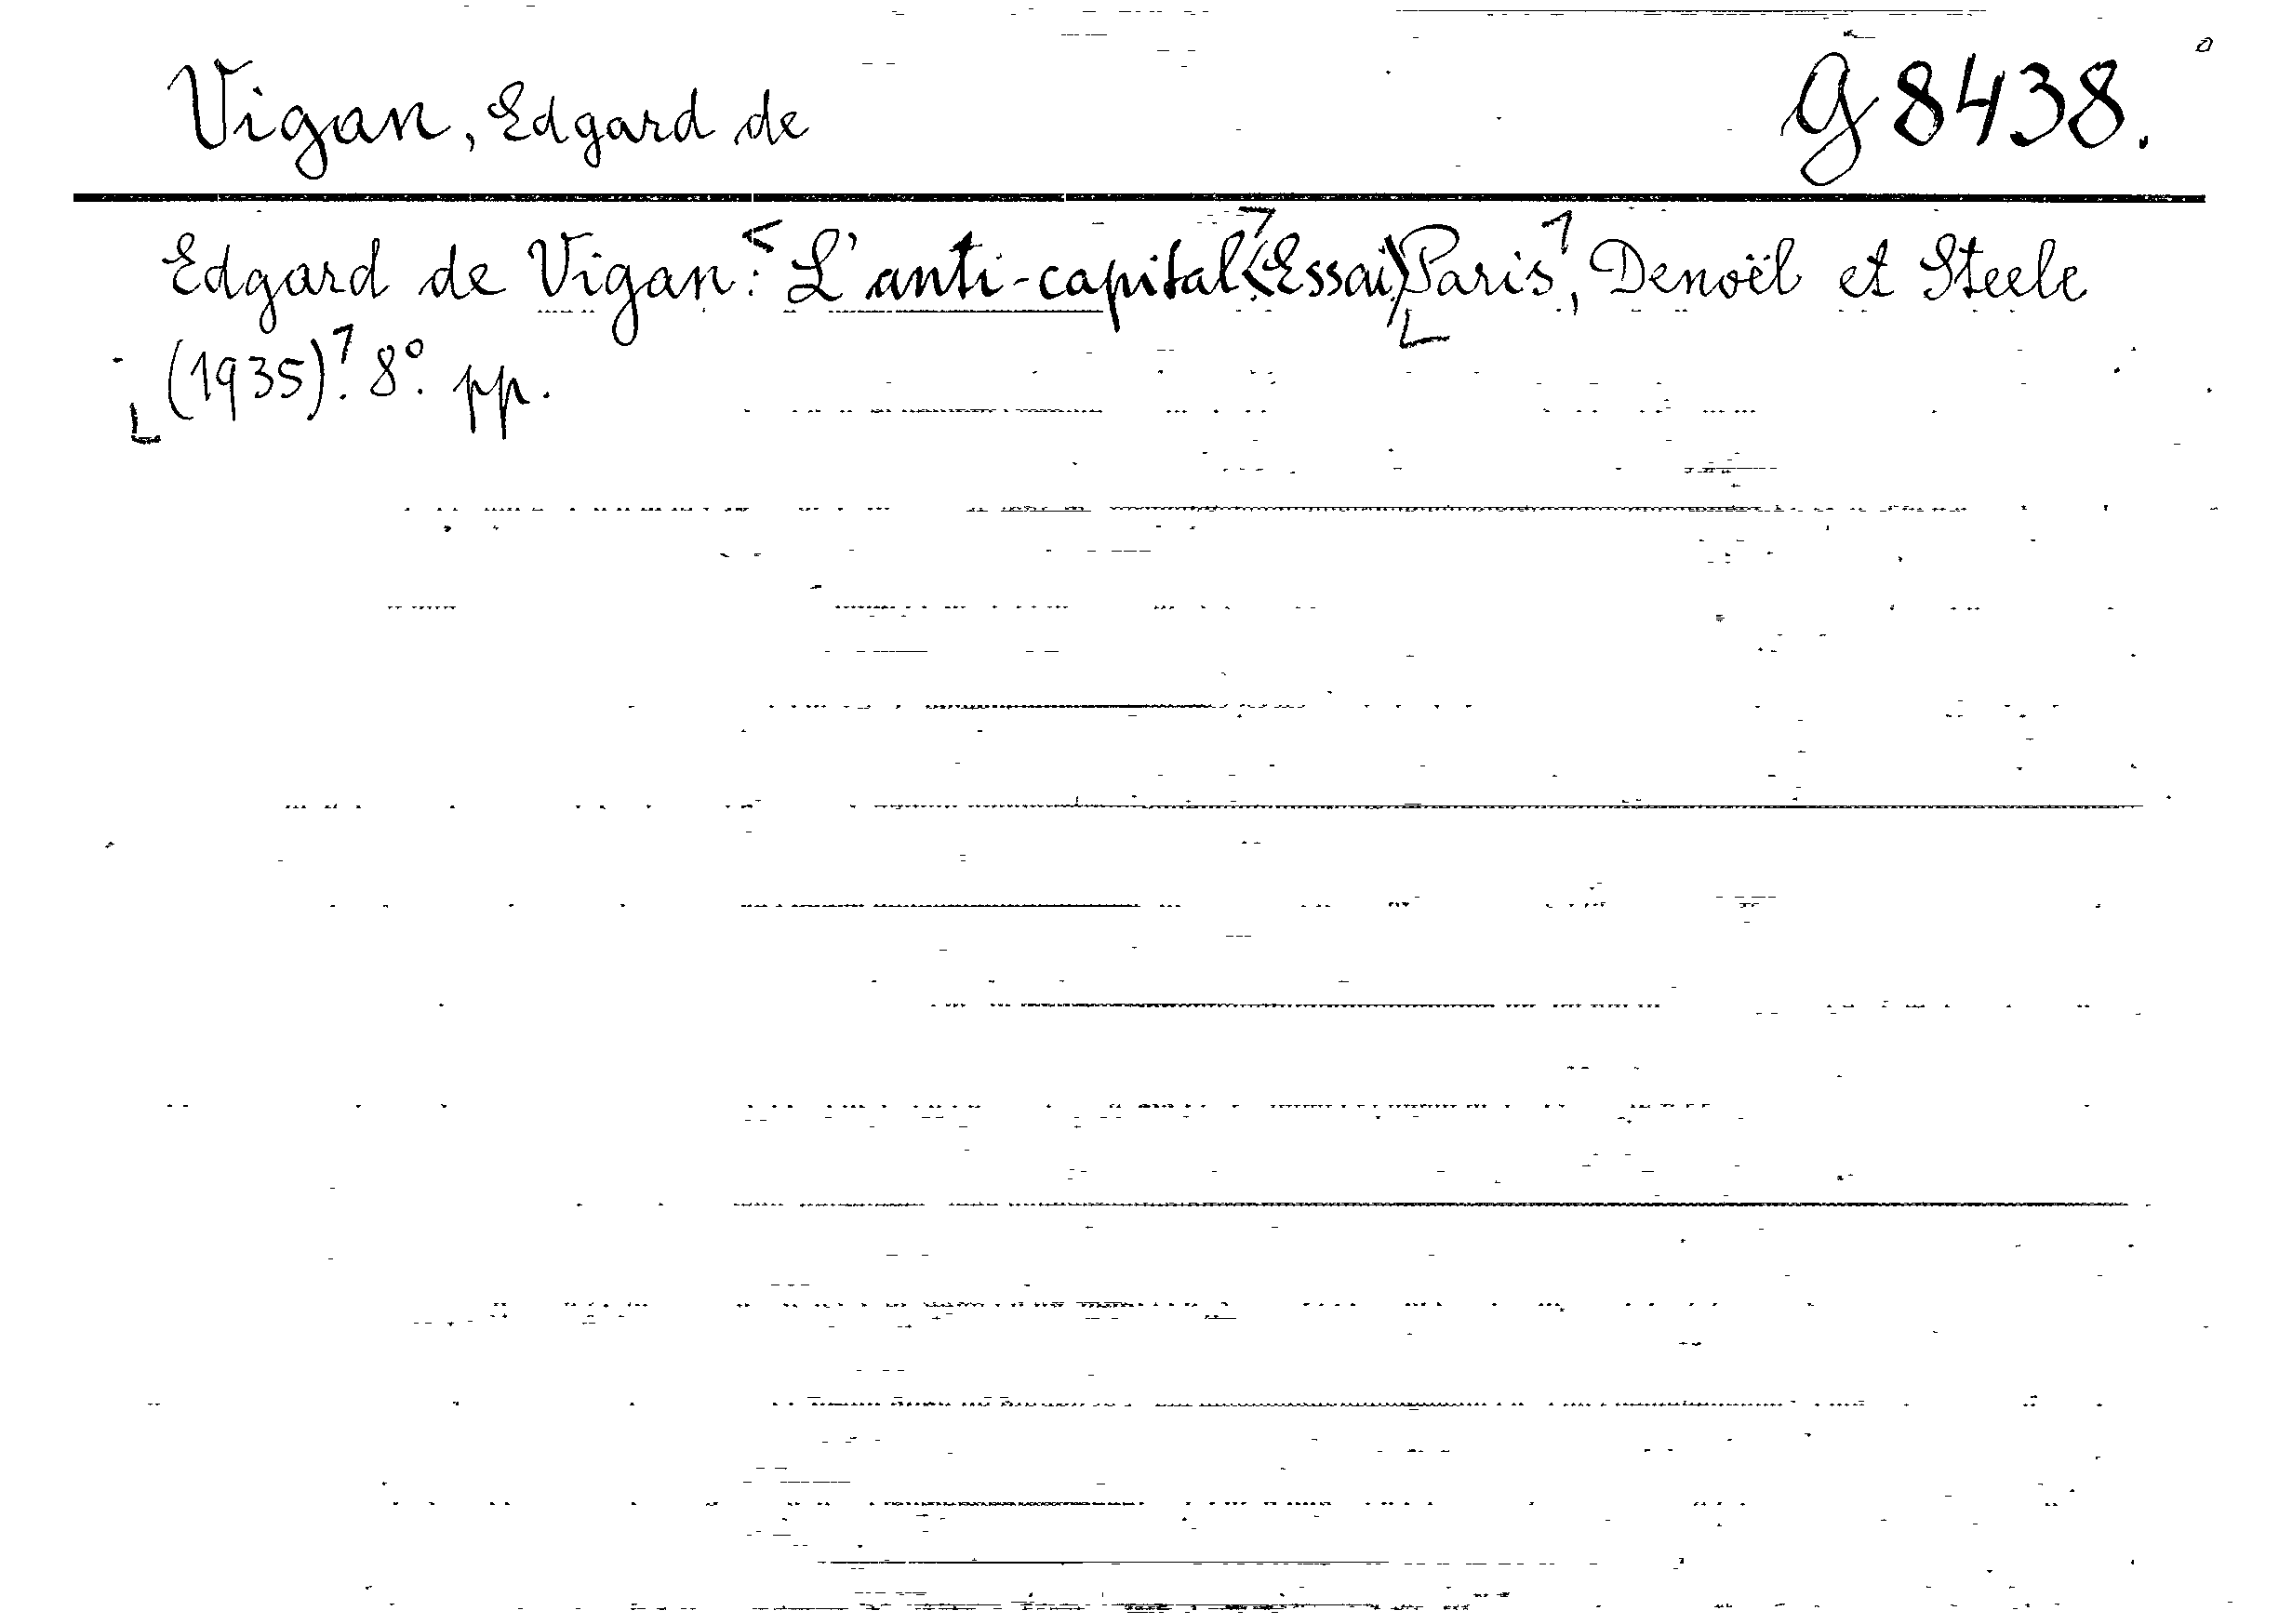 Vigan, Edgard de
G 8438.
Edgard de Vigan: L'anti-capital (Essai) Paris, Denoël et Steele
(1935). 8°. pp.